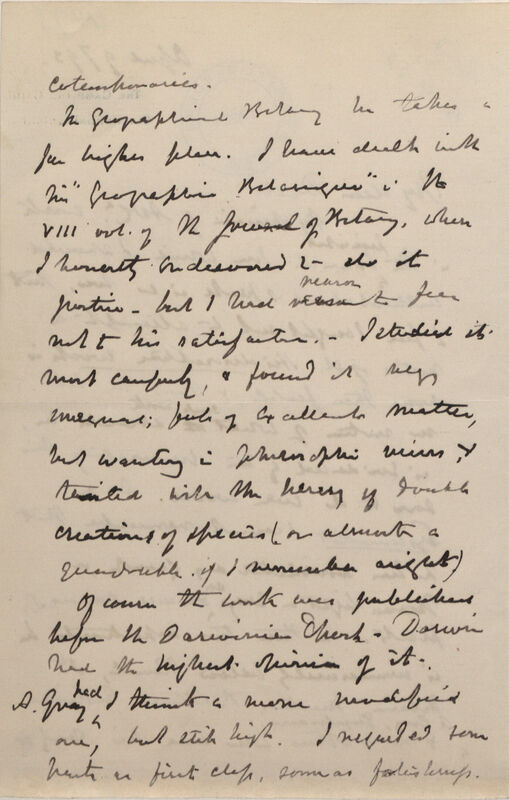 cotemporaries.
In Geographical Botany he takes a
far higher place. I have dealt with
his "Geographie Botanique" in the
VIII vol. of the Journal of Botany, where
I honestly endeavored to do it
justice – but I had reason to fear
not to his satisfaction. – I studied it
most carefully, & found it very
unequal; full of excellent matter,
but wanting in philosophic views, &
tainted with the heresy of double
creations of species (or almost a
quadruple if I remember aright)
Of course the work was published
before the Darwinian Epoch – Darwin
had the highest opinion of it.
A. Gray had I think a more modified
one, but still high. I regarded some
parts as first class, some as